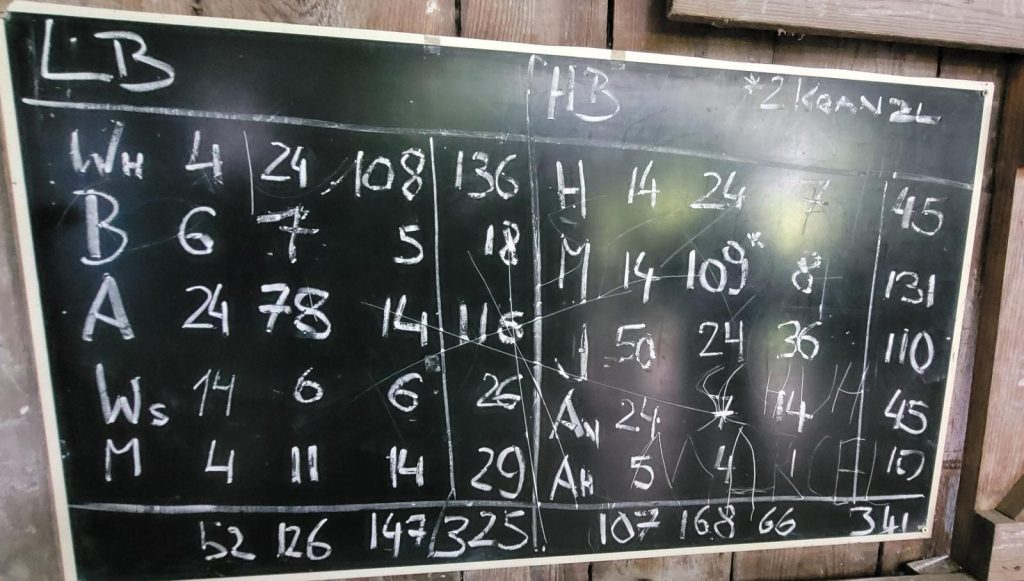 LB
WH 4 24 108 136
B 6 7 5 18
A 24 78 14 116
WS 14 6 6 26
M 4 11 14 29
52 126 147 325
HB *2 KRANZL
H 14 24 7 45
M 14 109* 8 131
J 50 24 36 110
AN 24 7 14 45
AH 5 4 1 10
107 168 66 341